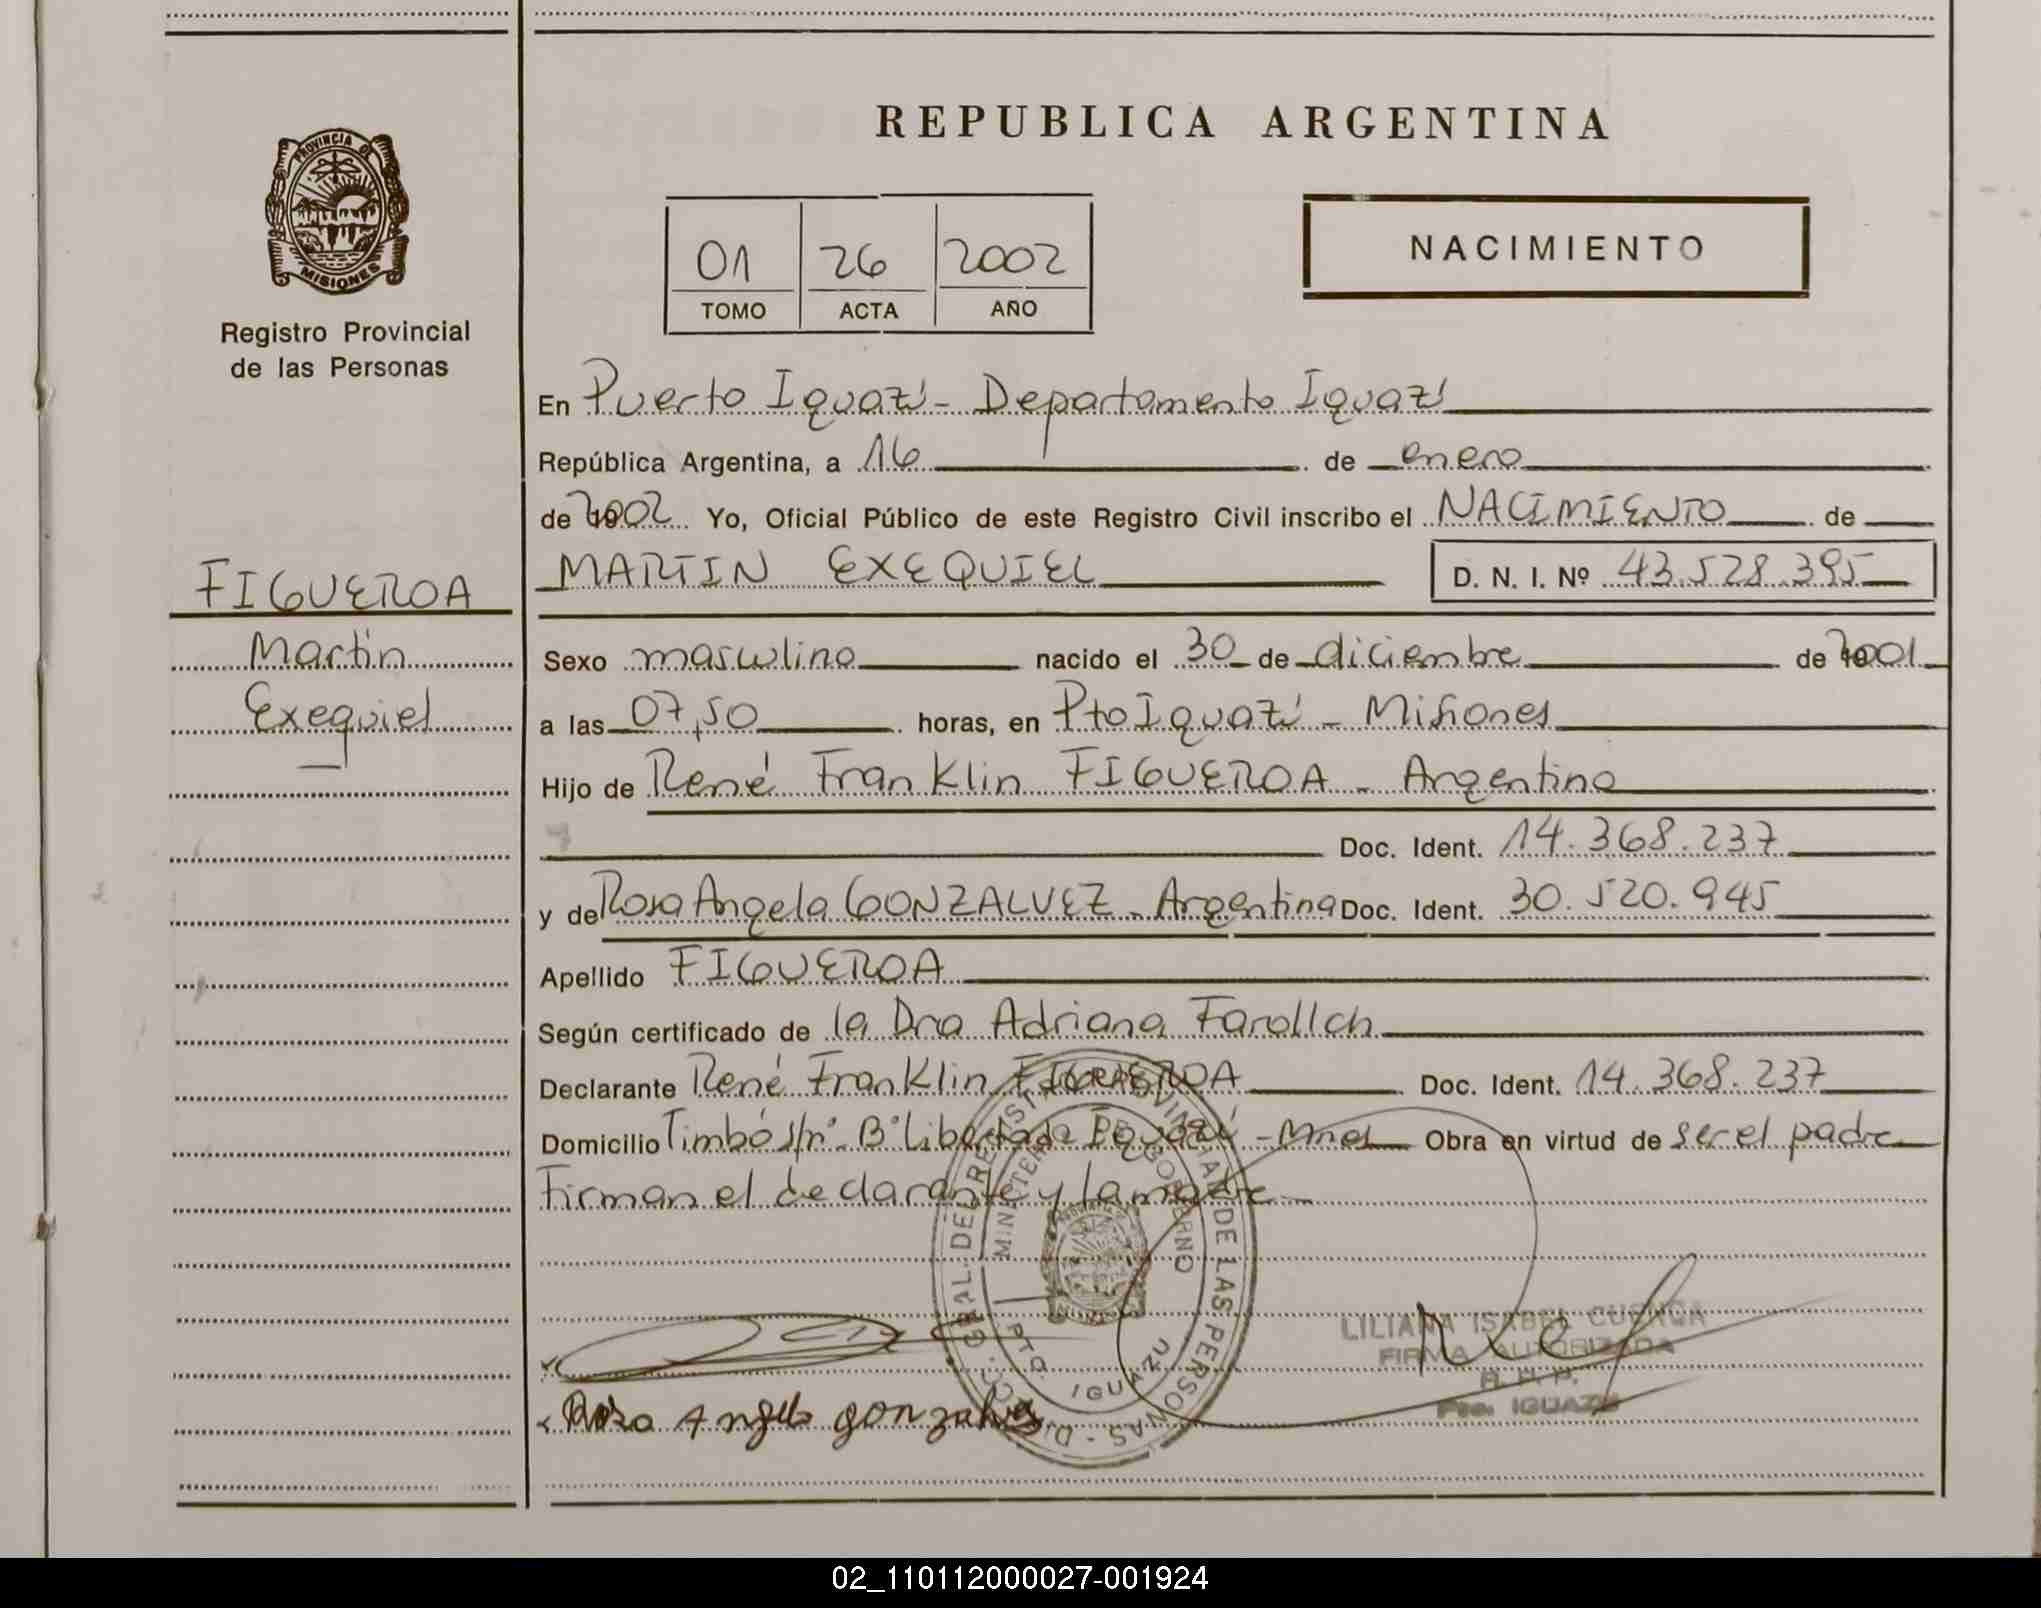 REPUBLICA ARGENTINA
PROVINCIA DE
MISIONES
Registro Provincial
de las Personas
01 26 2002
TOMO ACTA AÑO
NACIMIENTO
En Puerto Iguazú - Departamento Iguazú
República Argentina, a 16 de enero
de 2002 Yo, Oficial Público de este Registro Civil inscribo el NACIMIENTO de
FIGUEROA
Martín
Exequiel
MARTIN EXEQUIEL D. N. I. Nº 43.528.395
Sexo masculino nacido el 30 de diciembre de 2001
a las 07,50 horas, en Pto Iguazú - Misiones
Hijo de René Franklin FIGUEROA - Argentino
Doc. Ident. 14.368.237
y de Rosa Angela GONZALVEZ - Argentina Doc. Ident. 30.520.945
Apellido FIGUEROA
Según certificado de la Dra Adriana
Declarante René Franklin FIGUEROA Doc. Ident. 14.368.237
Domicilio Timbó s/nº - Bº Libertad - Iguazú - Mnes Obra en virtud de ser el padre
Firman el declarante y la madre -
MINISTERIO DE GOBIERNO
PTO. IGUAZU
LILIANA ISABEL CUENCA
FIRMA AUTORIZADA
R. P. P.
Pto. IGUAZU
Rosa Angela gonzalvez
02_110112000027-001924